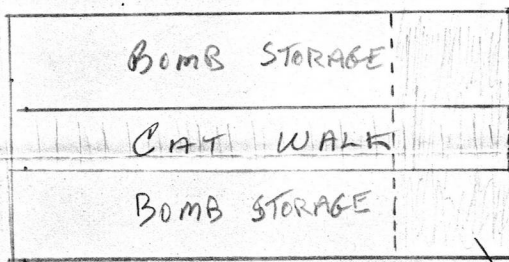 BOMB STORAGE
CAT WALK
BOMB STORAGE